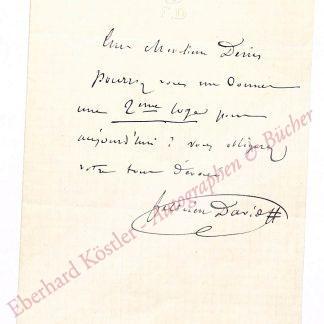 F D
Cher Monsieur Denis
pourrez vous me donner
une 2ème loge pour
aujourd'hui ? vous obligerez
votre tout dévoué
Félicien David
Eberhard Köstler - Autographen & Bücher